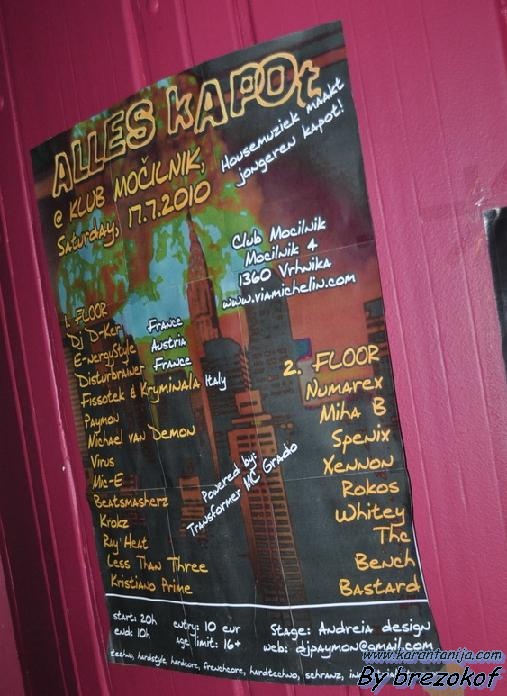 ALLES KAPOt
@ KLUB MOČILNIK,
Saturday, 17.7.2010
Housemuziek maakt
jongeren kapot!
Club Mocilnik
Mocilnik 4
1360 Vrhnika
www.viamichelin.com
1. FLOOR
DJ D-Ker France
E-nergyStyle Austria
Disturbrainer France
Fissotek & Kryminala Italy
Paymon
Michael van Demon
Virus
Mic-E
Beatsmasherz
Krokz
Ray'Heat
Less Than Three
Kristiano Prime
Powered by:
Transformer MC Grado
2. FLOOR
Numarex
Miha B
Spenix
Xennon
Rokos
Whitey
The
Bench
Bastard
start: 20h
end: 10h
entry: 10 eur
age limit: 16+
Stage: Andreia design
web: djpaymon@gmail.com
techno, hardstyle hardcore, frenchcore, hardtechno, schranz,
www.karantanija.com
By brezokof